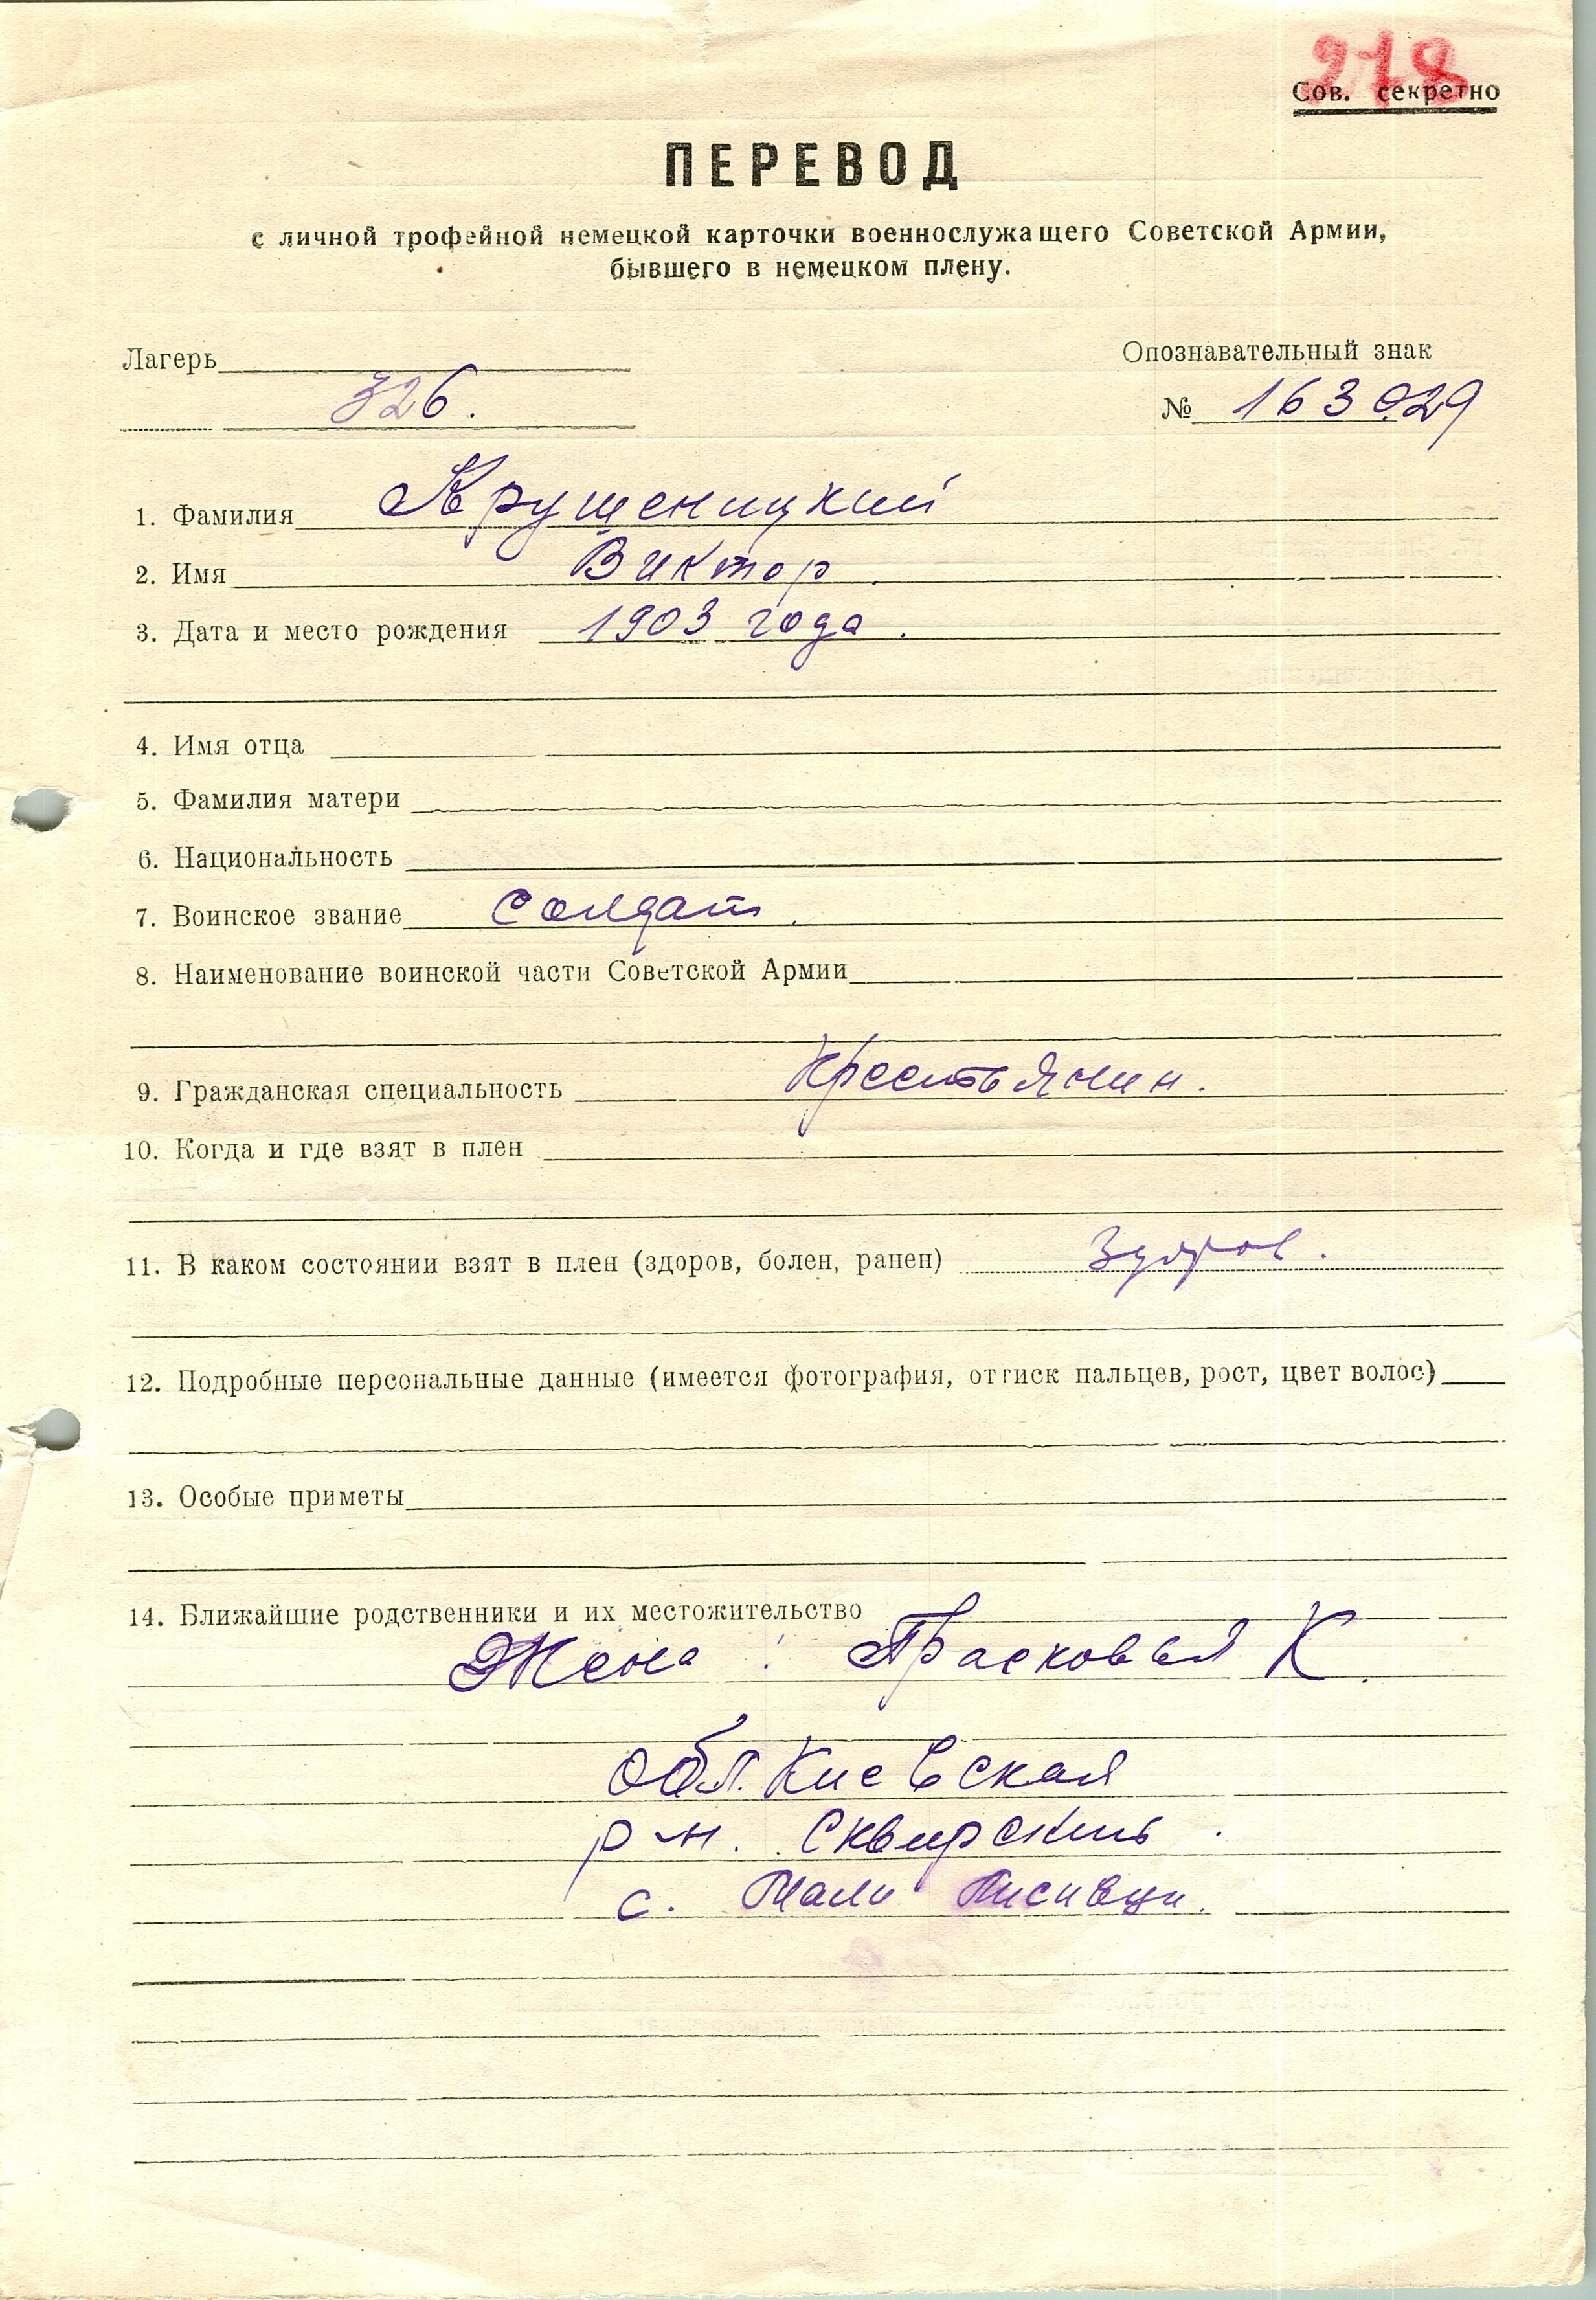 278
Сов. секретно
ПЕРЕВОД
с личной трофейной немецкой карточки военнослужащего Советской Армии,
бывшего в немецком плену.
Лагерь
326.
Опознавательный знак
№ 163029
1. Фамилия Крушеницкий
2. Имя Виктор.
3. Дата и место рождения 1903 года.
4. Имя отца
5. Фамилия матери
6. Национальность
7. Воинское звание солдат.
8. Наименование воинской части Советской Армии
9. Гражданская специальность Крестьянин.
10. Когда и где взят в плен
11. В каком состоянии взят в плен (здоров, болен, ранен) Здоров.
12. Подробные персональные данные (имеется фотография, оттиск пальцев, рост, цвет волос)
13. Особые приметы
14. Ближайшие родственники и их местожительство
Жена: Прасковья К.
обл. Киевская
р-н. Сквирский.
с. Мали